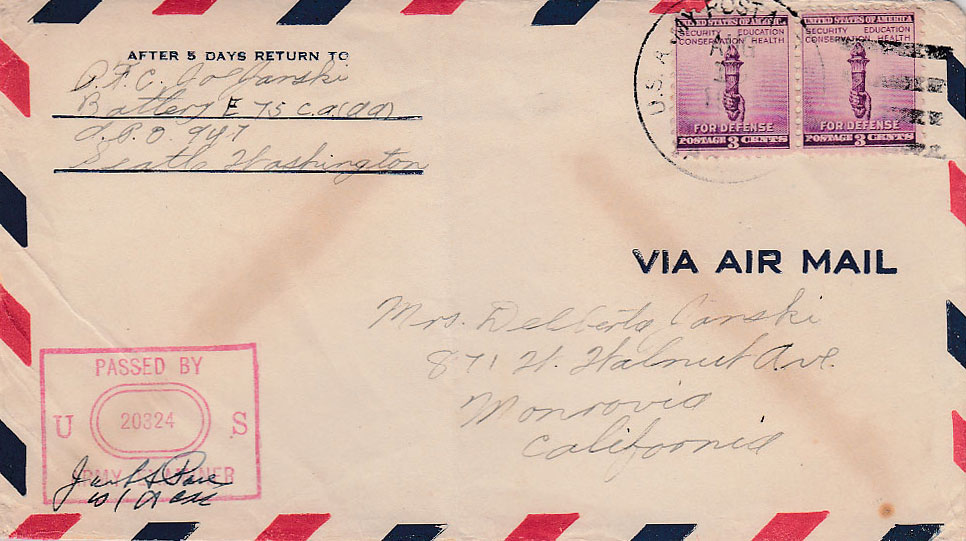 AFTER 5 DAYS RETURN TO
P.F.C.
Battery E 75 C.A.(AA)
A.P.O. 947
Seatle Washington
U.S. ARMY POSTAL
AUG
UNITED STATES OF AMERICA
SECURITY EDUCATION
CONSERVATION HEALTH
FOR DEFENSE
POSTAGE 3 CENTS
UNITED STATES OF AMERICA
SECURITY EDUCATION
CONSERVATION HEALTH
FOR DEFENSE
POSTAGE 3 CENTS
VIA AIR MAIL
Mrs. Delberta
871 W. Walnut Ave.
Monrovia
California
PASSED BY
U 20324 S
ARMY EXAMINER